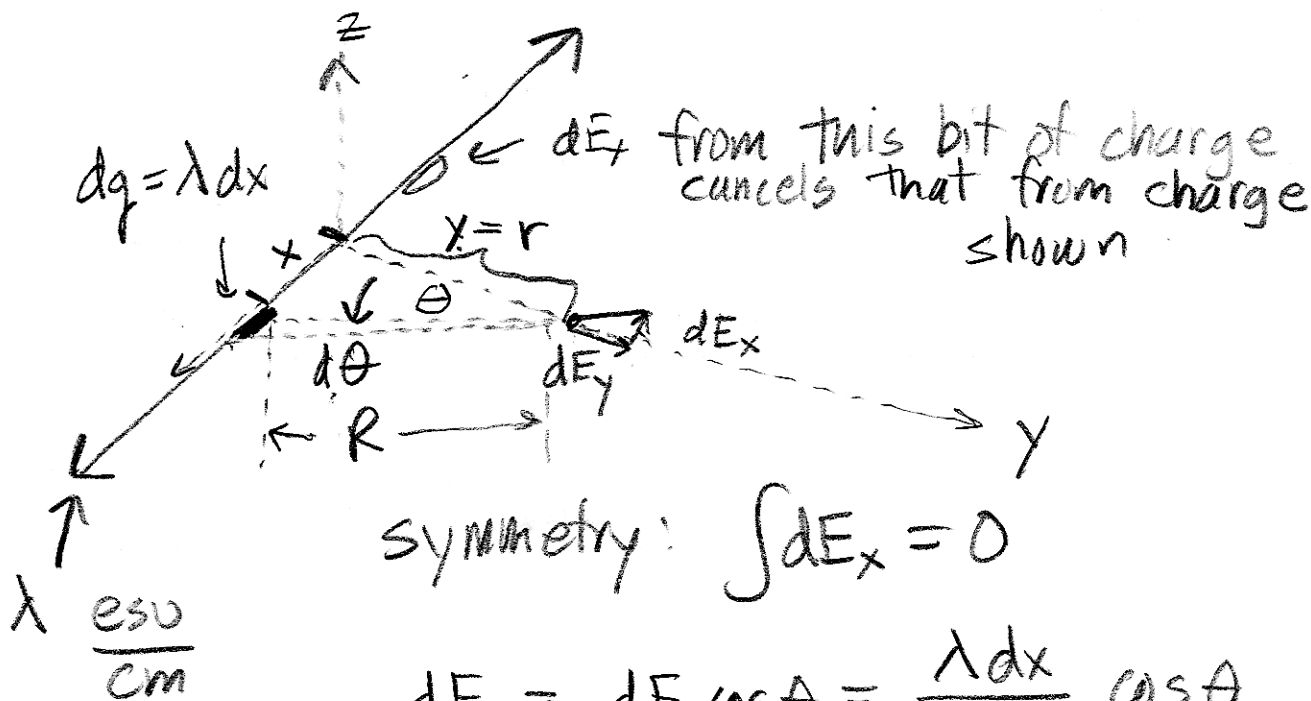 z
dE_x from this bit of charge
cancels that from charge
shown
dq = λdx
x
y = r
θ
dθ
dE_x
dE_y
R
y
symmetry: ∫dE_x = 0
λ esu/cm
dE = dE cos θ = λdx cos θ